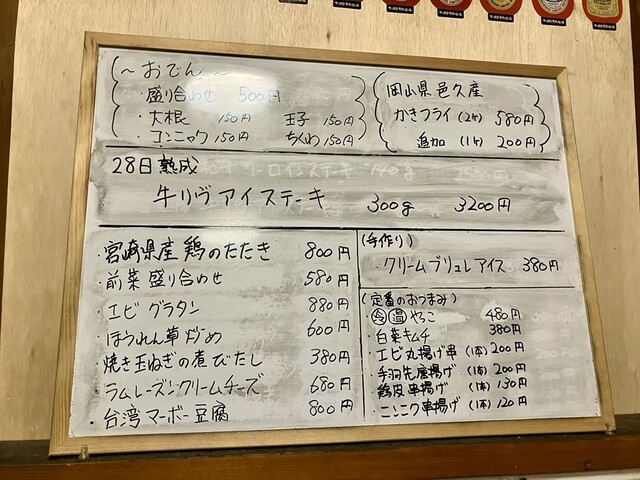 ～おでん～
・盛り合わせ 500円
・大根 150円 玉子 150円
・コンニャク 150円 ちくわ 150円
岡山県邑久産
かきフライ (2ケ) 580円
追加 (1ケ) 200円
28日熟成
牛リヴアイステーキ 300g 3200円
・宮崎県産 鶏のたたき 800円
・前菜 盛り合わせ 580円
・エビ グラタン 880円
・ほうれん草炒め 600円
・焼き玉ねぎの煮びたし 380円
・ラムレーズンクリームチーズ 680円
・台湾マーボー豆腐 800円
(手作り)
・クリームブリュレアイス 380円
(定番のおつまみ)
・冷 温 やっこ 480円
・白菜キムチ 380円
・エビ丸揚げ串 (1本) 200円
・手羽先唐揚げ (1本) 200円
・鶏皮串揚げ (1本) 130円
・ニンニク串揚げ (1本) 120円